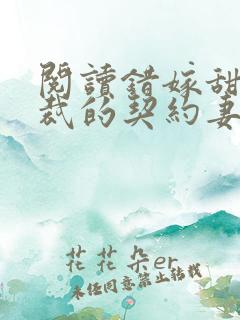 閱讀錯嫁甜
裁的契約妻
花花朵er
未經同意禁止轉載